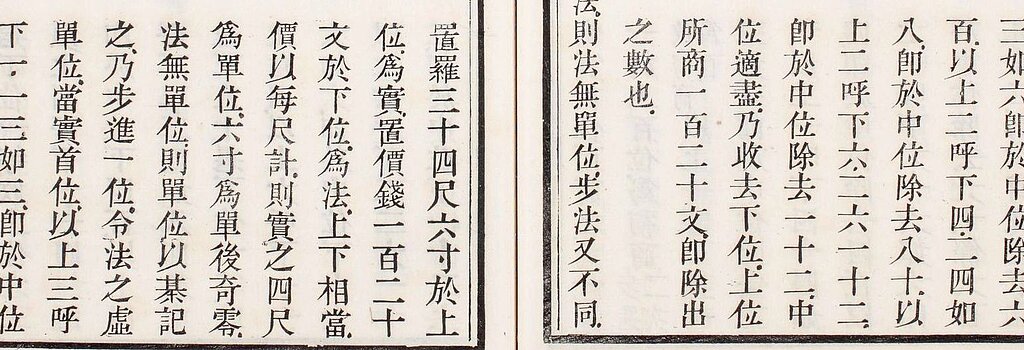 三如六卽於中位除去六
百.以上二呼下四.二四如
八.卽於中位除去八十.以
上二呼下六.二六一十二.
卽於中位除去一十二.中
位適盡.乃收去下位.上位
所商一百二十文.卽除出
之數也.
法.則法無單位.步法又不同.
置羅三十四尺六寸於上
位.爲實.置價錢一百二十
文於下位.爲法.上下相當.
價以每尺計.則實之四尺
爲單位.六寸爲單後奇零.
法無單位.則單位以棊記
之.乃步進一位.令法之虛
單位.當實首位.以上三呼
下一.一三如三.卽於中位